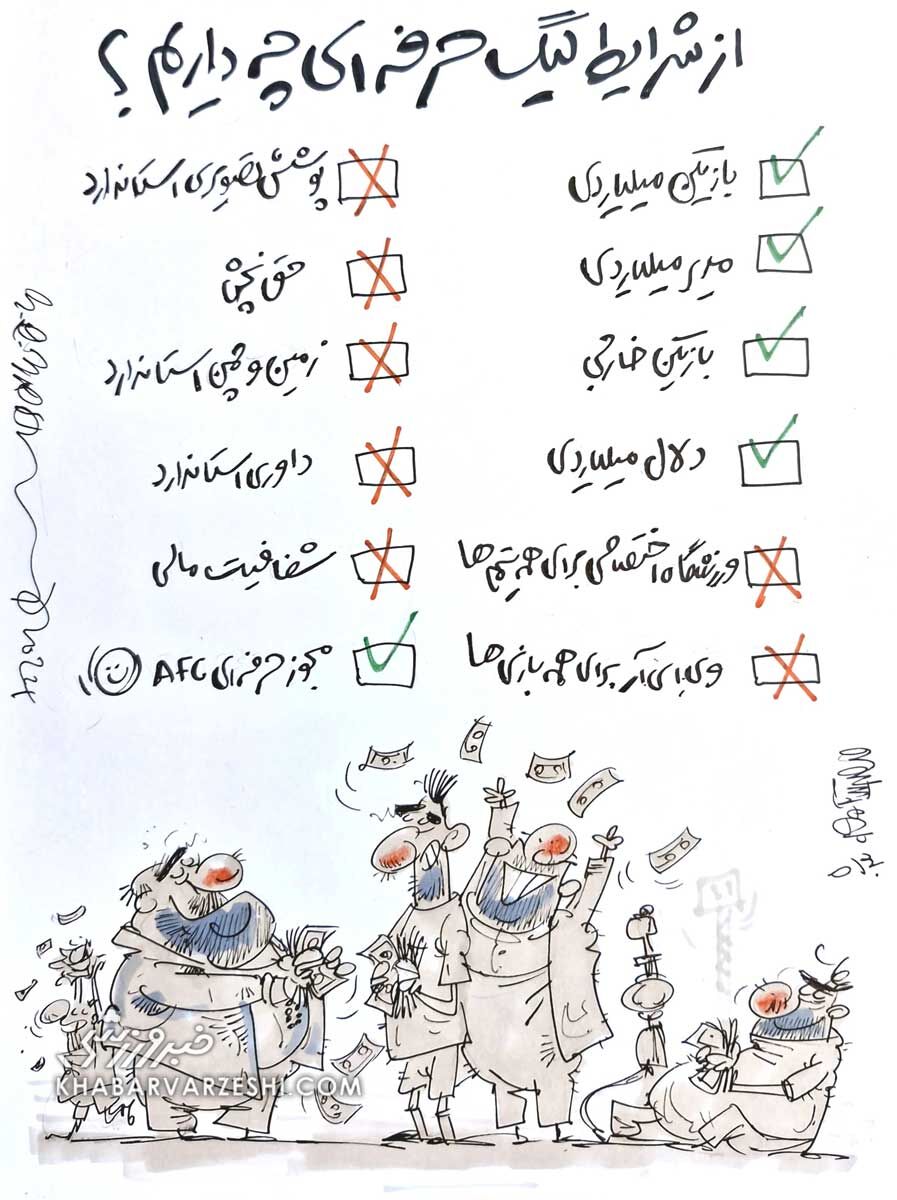 از شرایط لیگ حرفه ای چه داریم؟
بازیکن میلیاردی
مدیر میلیاردی
بازیکن خارجی
دلال میلیاردی
ورزشگاه اختصاصی برای همه تیم ها
وی ای آر برای همه بازی ها
پوشش تصویری استاندارد
حق پخش
زمین و چمن استاندارد
داوری استاندارد
شفافیت مالی
مجوز حرفه ای AFC
2024
خبرورزشی
KHABARVARZESHI.COM